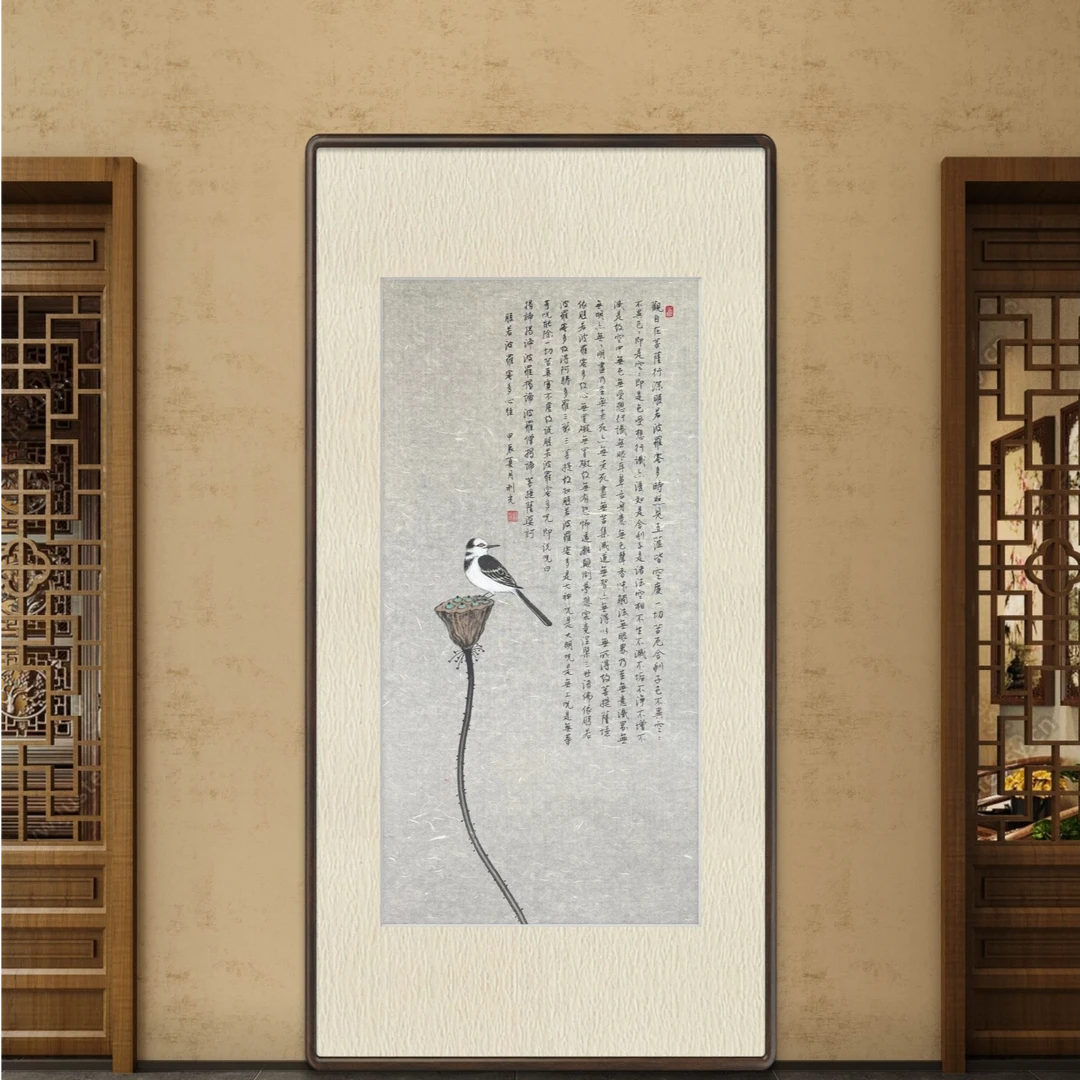 觀自在菩薩行深般若波羅蜜多時照見五蘊皆空度一切苦厄舍利子色不異空〻
不異色〻即是空〻即是色受想行識亦復如是舍利子是諸法空相不生不滅不垢不淨不增不
減是故空中無色無受想行識無眼耳鼻舌身意無色聲香味觸法無眼界乃至無意識界無
無明亦無〻明盡乃至無老死亦無老死盡無苦集滅道無智亦無得以無所得故菩提薩埵
依般若波羅蜜多故心無罣礙無罣礙故無有恐怖遠離顛倒夢想究竟涅槃三世諸佛依般若
波羅蜜多故得阿耨多羅三藐三菩提故知般若波羅蜜多是大神咒是大明咒是無上咒是無等
等咒能除一切苦真實不虛故說般若波羅蜜多咒即說咒曰
揭諦揭諦波羅揭諦波羅僧揭諦菩提薩婆訶
般若波羅蜜多心經 甲辰夏月